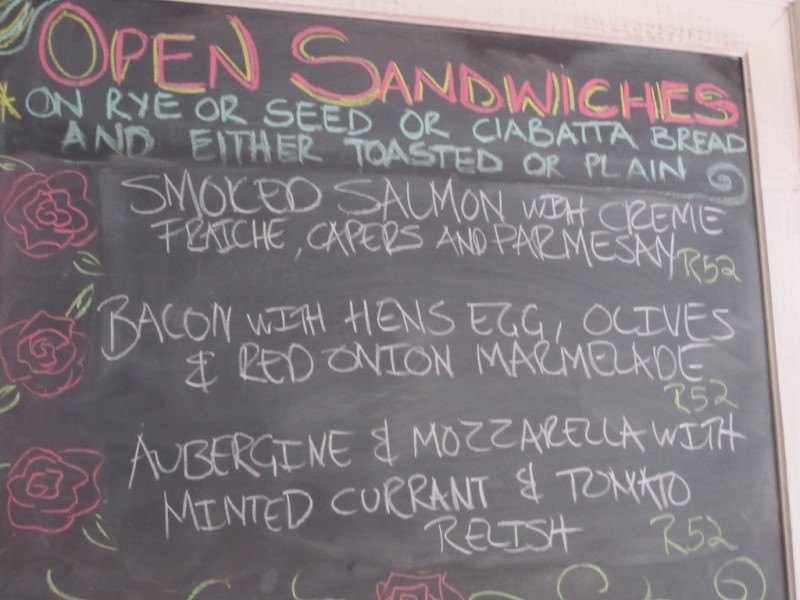 OPEN SANDWIICHES
ON RYE OR SEED OR CIABATTA BREAD
AND EITHER TOASTED OR PLAIN
SMOKED SALMON WITH CREME
FRAICHE, CAPERS AND PARMESAN R52
BACON WITH HENS EGG, OLIVES
& RED ONION MARMELADE
R52
AUBERGINE & MOZZARELLA WITH
MINTED CURRANT & TOMATO
RELISH R52